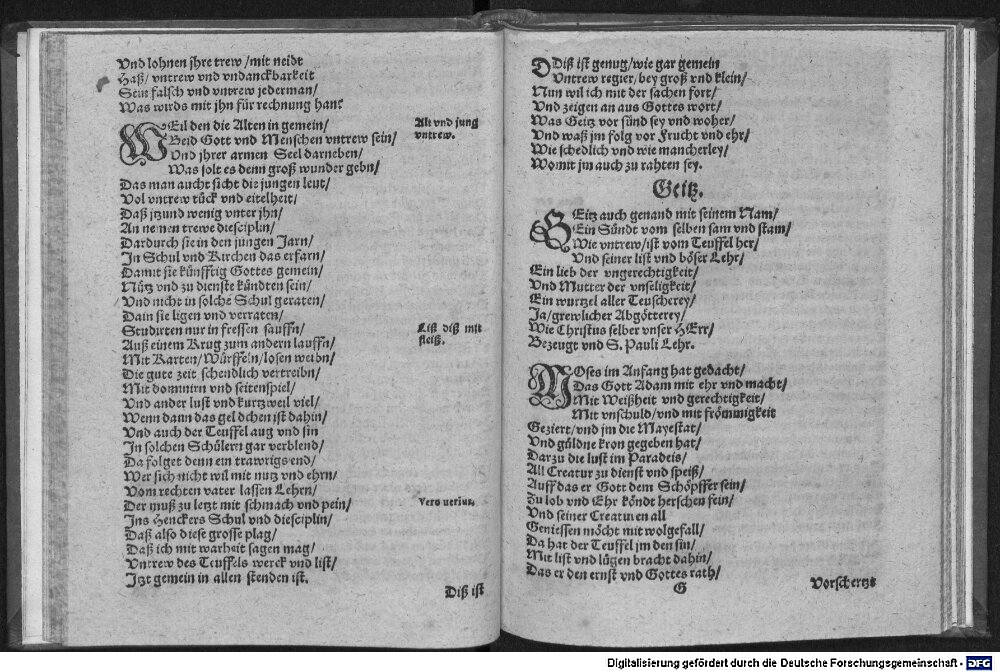 Vnd lohnen jhre trew /mit neidt
Haß/ vntrew vnd vndanckbarkeit
Sein falsch vnd vntrew jederman/
Was wirds mit jhn für rechnung han?
WEil den die Alten in gemein/
Beid Gott vnd Menschen vntrew sein/
Vnd jhrer armen Seel darneben/
Was solt es denn groß wunder gebn/
Das man aucht sicht die jungen leut/
Vol vntrew tück vnd eitelheit/
Daß jtzund wenig vnter jhn/
An nemen trewe diesciplin/
Dardurch sie in den jungen Jarn/
In Schul vnd Kirchen das erfarn/
Damit sie künfftig Gottes gemein/
Nütz vnd zu dienste kündten sein/
Vnd nicht in solche Schul geraten/
Dain sie ligen vnd verraten/
Studirten nur in fressen sauffn/
Auß einem Krug zum andern lauffn/
Mit Karten/Würffeln/losen weibn/
Die gute zeit schendlich vertreibn/
Mit domnirn vnd seitenspiel/
Vnd ander lust vnd kurtzweil viel/
Wenn dann das geldchen ist dahin/
Vnd auch der Teuffel aug vnd sin
In solchen Schülern gar verblend/
Da folget denn ein trawrigs end/
Wer sich nicht wil mit nutz vnd ehrn/
Vom rechten vater lassen Lehrn/
Der muß zu letzt mit schmach vnd pein/
Ins Henckers Schul vnd diesciplin/
Daß also diese grosse plag/
Daß ich mit warheit sagen mag/
Vntrew des Teuffels werck vnd list/
Itzt gemein in allen stenden ist.
Alt vnd jung
vntrew.
Liß diß mit
fleiß.
Vers uerius.
Diß ist
DIß ist genug/wie gar gemein
Vntrew regier/bey groß vnd klein/
Nun wil ich mit der sachen fort/
Vnd zeigen an aus Gottes wort/
Was Geitz vor sünd sey vnd woher/
Vnd waß jm folg vor Frucht vnd ehr/
Wie schedlich vnd wie mancherley/
Womit jm auch zu rahten sey.
Geitz.
GEitz auch genand mit seinem Nam/
Ein Sündt vom selben sam vnd stam/
Wie vntrew/ist vom Teuffel her/
Vnd seiner list vnd böser Lehr/
Ein lieb der vngerechtigkeit/
Vnd Mutter der vnseligkeit/
Ein wurtzel aller Teuscherey/
Ja/grewlicher Abgötterey/
Wie Christus selber vnser HErr/
Bezeugt vnd S. Pauli Lehr.
MOses im Anfang hat gedacht/
Das Gott Adam mit ehr vnd macht/
Mit Weißheit vnd gerechtigkeit/
Mit vnschuld/vnd mit frömmigkeit
Geziert/vnd jm die Mayestat/
Vnd güldne kron gegeben hat/
Darzu die lust im Paradeis/
All Creatur zu dienst vnd speiß/
Auff das er Gott dem Schöpffer sein/
Zu lob vnd Ehr köndt herschen fein/
Vnd seiner Creaturen all
Geniessen möcht mit wolgefall/
Da hat der Teuffel jm den sin/
Mit list vnd lügen bracht dahin/
Das er den ernst vnd Gottes rath/
G
Vorschertzt
Digitalisierung gefördert durch die Deutsche Forschungsgemeinschaft - DFG